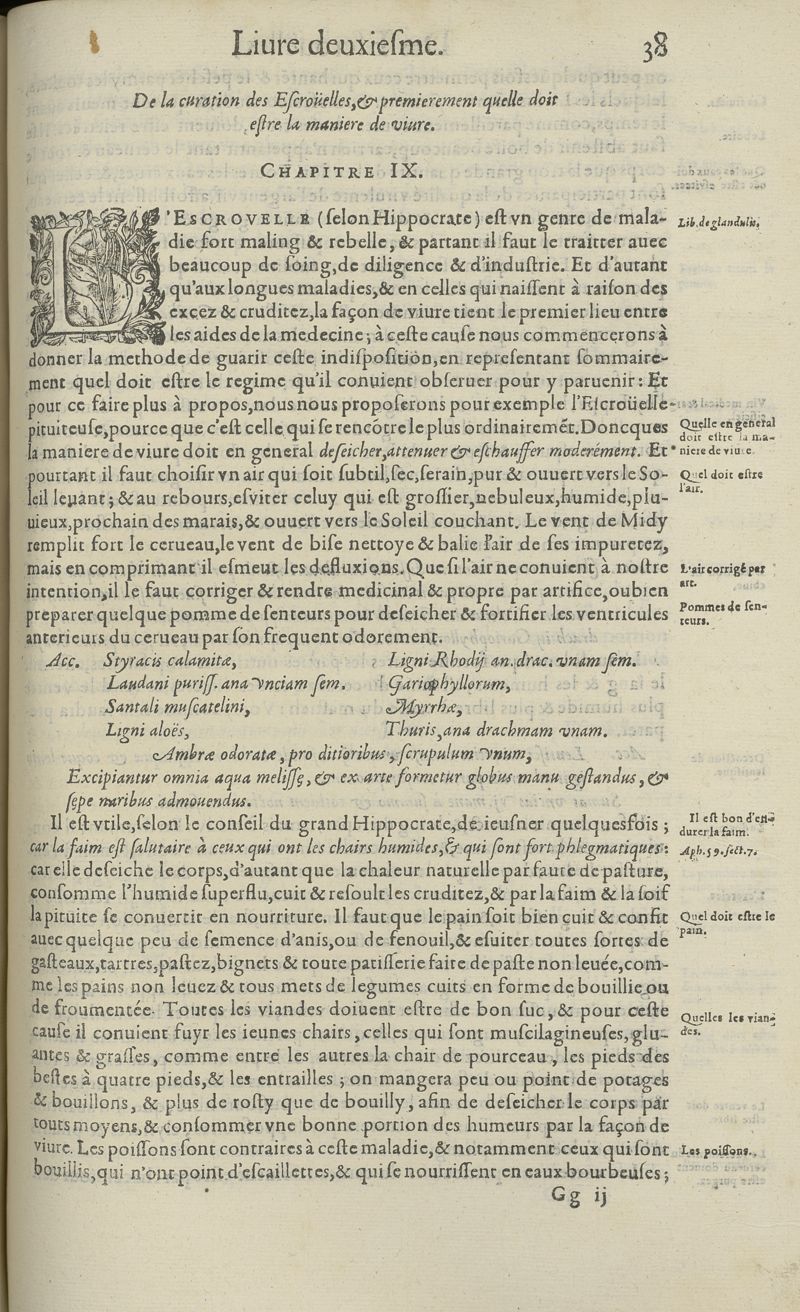 Liure deuxiesme. 38
De la curation des Escroüelles, & premierement quelle doit
estre la maniere de viure.
CHAPITRE IX.
L'ESCROVELLE (selon Hippocrate) est vn genre de mala-
die fort maling & rebelle, & partant il faut le traitter auec
beaucoup de soing, de diligence & d'industrie. Et d'autant
qu'aux longues maladies, & en celles qui naissent à raison des
excez & cruditez, la façon de viure tient le premier lieu entre
les aides de la medecine; à ceste cause nous commencerons à
donner la methode de guarir ceste indisposition, en representant sommaire-
ment quel doit estre le regime qu'il conuient obseruer pour y paruenir: Et
pour ce faire plus à propos, nous nous proposerons pour exemple l'Escroüelle
pituiteuse, pource que c'est celle qui se rencōtre le plus ordinairemēt. Doncques
la maniere de viure doit en general deseicher, attenuer & eschauffer moderément. Et
pourtant il faut choisir vn air qui soit subtil, sec, serain, pur & ouuert vers le So-
leil leuant; & au rebours, esviter celuy qui est grossier, nebuleux, humide, plu-
uieux, prochain des marais, & ouuert vers le Soleil couchant. Le vent de Midy
remplit fort le cerueau, le vent de bise nettoye & balie l'air de ses impuretez,
mais en comprimant il esmeut les defluxions. Que si l'air ne conuient à nostre
intention, il le faut corriger & rendre medicinal & propre par artifice, ou bien
preparer quelque pomme de senteurs pour deseicher & fortifier les ventricules
anterieurs du cerueau par son frequent odorement.
Acc. Styracis calamitæ, Ligni Rhodij an. drac. vnam sem.
Laudani puriss. ana vnciam sem. Gariophyllorum,
Santali muscatelini, Myrrhæ,
Ligni aloës, Thuris, ana drachmam vnam.
Ambræ odoratæ, pro ditioribus, scrupulum vnum,
Excipiantur omnia aqua melissę, & ex arte formetur globus manu gestandus, &
sepe naribus admouendus.
Il est vtile, selon le conseil du grand Hippocrate, de ieusner quelquesfois;
car la faim est salutaire à ceux qui ont les chairs humides, & qui sont fort phlegmatiques:
car elle deseiche le corps, d'autant que la chaleur naturelle par faute de pasture,
consomme l'humide superflu, cuit & resoult les cruditez, & par la faim & la soif
la pituite se conuertit en nourriture. Il faut que le pain soit bien cuit & confit
auec quelque peu de semence d'anis, ou de fenouil, & esuiter toutes sortes de
gasteaux, tartres, pastez, bignets & toute patisserie faite de paste non leuée, com-
me les pains non leuez & tous mets de legumes cuits en forme de bouillie ou
de froumentée. Toutes les viandes doiuent estre de bon suc, & pour ceste
cause il conuient fuyr les ieunes chairs, celles qui sont muscilagineuses, glu-
antes & grasses, comme entre les autres la chair de pourceau, les pieds des
bestes à quatre pieds, & les entrailles; on mangera peu ou point de potages
& bouillons, & plus de rosty que de bouilly, afin de deseicher le corps par
touts moyens, & consommer vne bonne portion des humeurs par la façon de
viure. Les poissons sont contraires à ceste maladie, & notamment ceux qui sont
bouillis, qui n'ont point d'escaillettes, & qui se nourrissent en eaux bourbeuses;
Gg ij
Lib. de glandulis.
Quelle en general
doit estre la ma-
niere de viure.
Quel doit estre
l'air.
L'air corrigé par
art.
Pommes de sen-
teurs.
Il est bon d'en-
durer la faim.
Aph. 59. sect. 7.
Quel doit estre le
pain.
Quelles les vian-
des.
Les poissons.